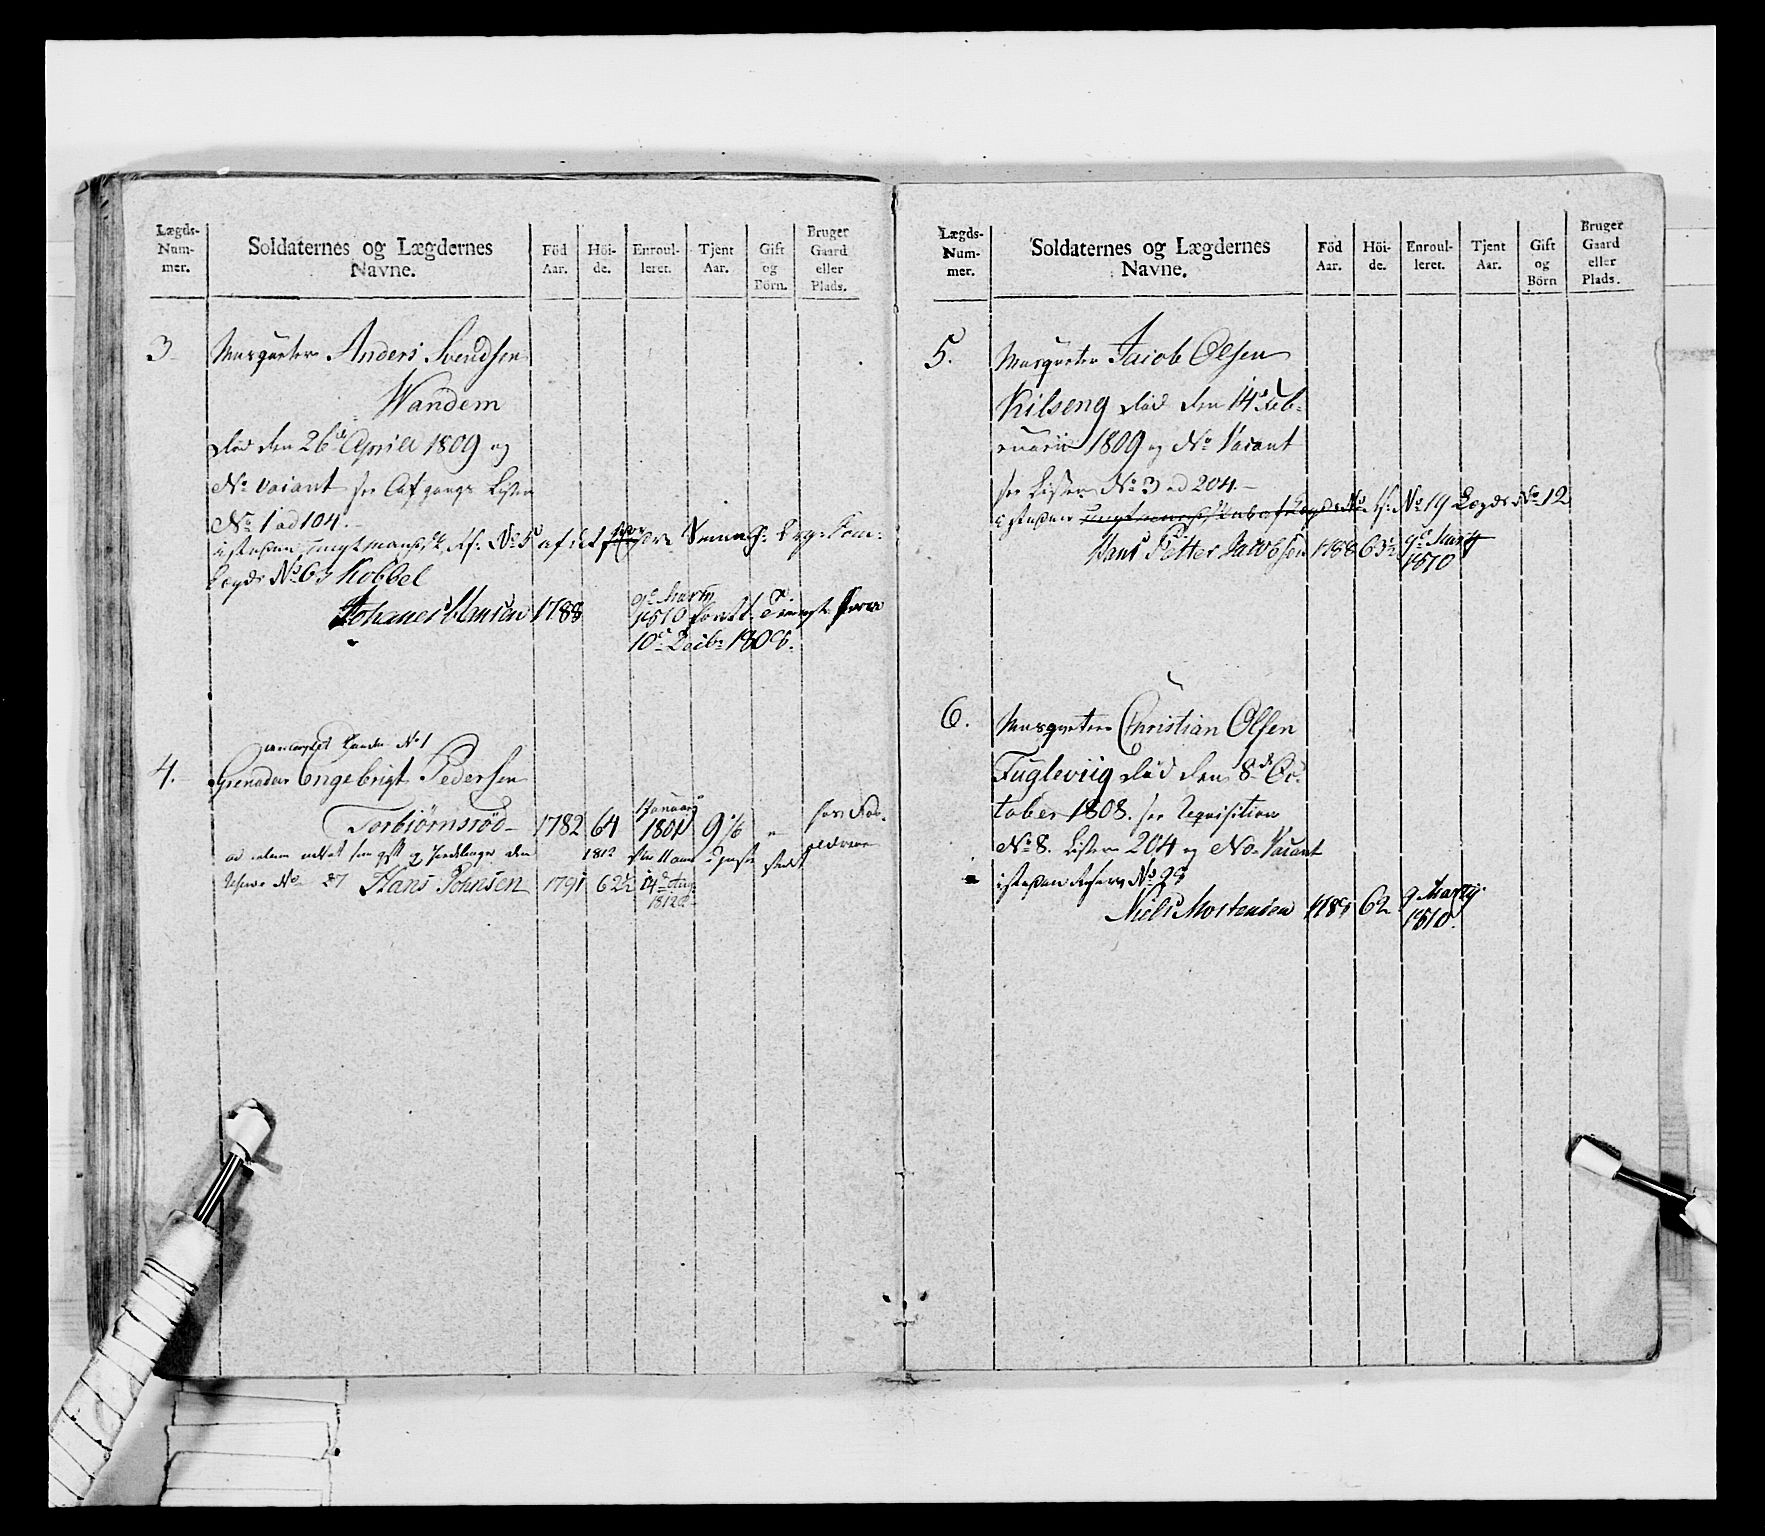 Lægds-Num-mer.
Soldaternes og Lægdernes Navne.
Föd Aar.
Höi-de.
Enroul-leret.
Tjent Aar.
Gift og Börn.
Bruger Gaard eller Plads.
3
Musqueteer Anders Svendsen
Wandem
død den 26de April 1809 og
No vacant see Afgangs Listen
No 1 ad 104.
No 5 af det
Lægds No 63 Kobbel
Johanes Hansen 1788
9de Martii
1810
10de Decbr 1808.
No 1
4.
Grenader Engebrigt Pedersen
Torbiørnsrød 1782 64 1 Januarii 1801 9 1/6 "
1812
Reserve No 27 Hans Johnsen 1791 62½ 14de Aug. 1812
Lægds-Num-mer.
Soldaternes og Lægdernes Navne.
Föd Aar.
Höi-de.
Enroul-leret.
Tjent Aar.
Gift og Börn
Bruger Gaard eller Plads.
5.
Musqueteer Jacob Olsen
Kilseng død den 14de Feb-
ruarii 1809 og No Vacant
see Listen No 3 ad 204.
No 19 Lægds No 12
Hans Petter Jacobsen 1788 63½ 9de Marty
1810
6.
Musqueteer Christian Olsen
Fugleviig død den 8de Oc-
tober 1808. see Requisition
No 8. Listen 204 og No Vacant
istæden Reserve No 28
Niels Mortensen 1789 62 9 Marty
1810.